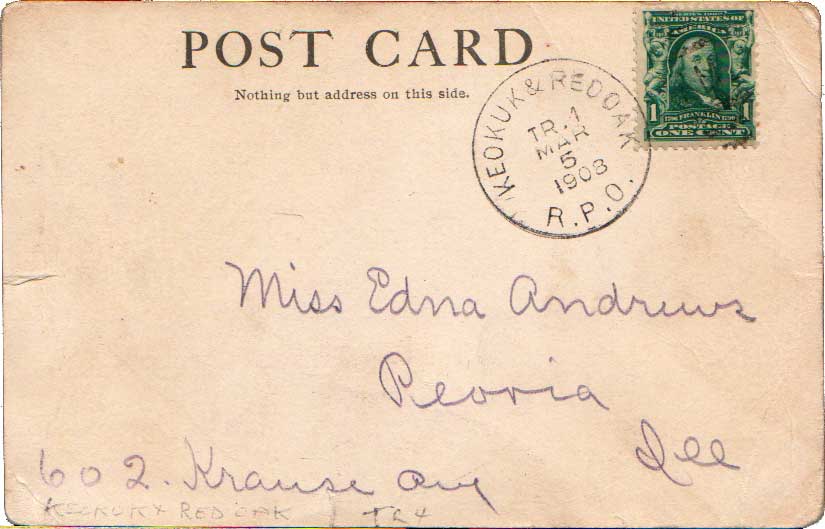 POST CARD
Nothing but address on this side.
KEOKUK & RED OAK
TR. 1
MAR
5
1908
R.P.O.
SERIES 1902
UNITED STATES OF
AMERICA
1 1706 FRANKLIN 1790 1
POSTAGE
ONE CENT
Miss Edna Andrews
Peoria
Ill
602. Krause Ave
KEOKUK & RED OAK / TR 4